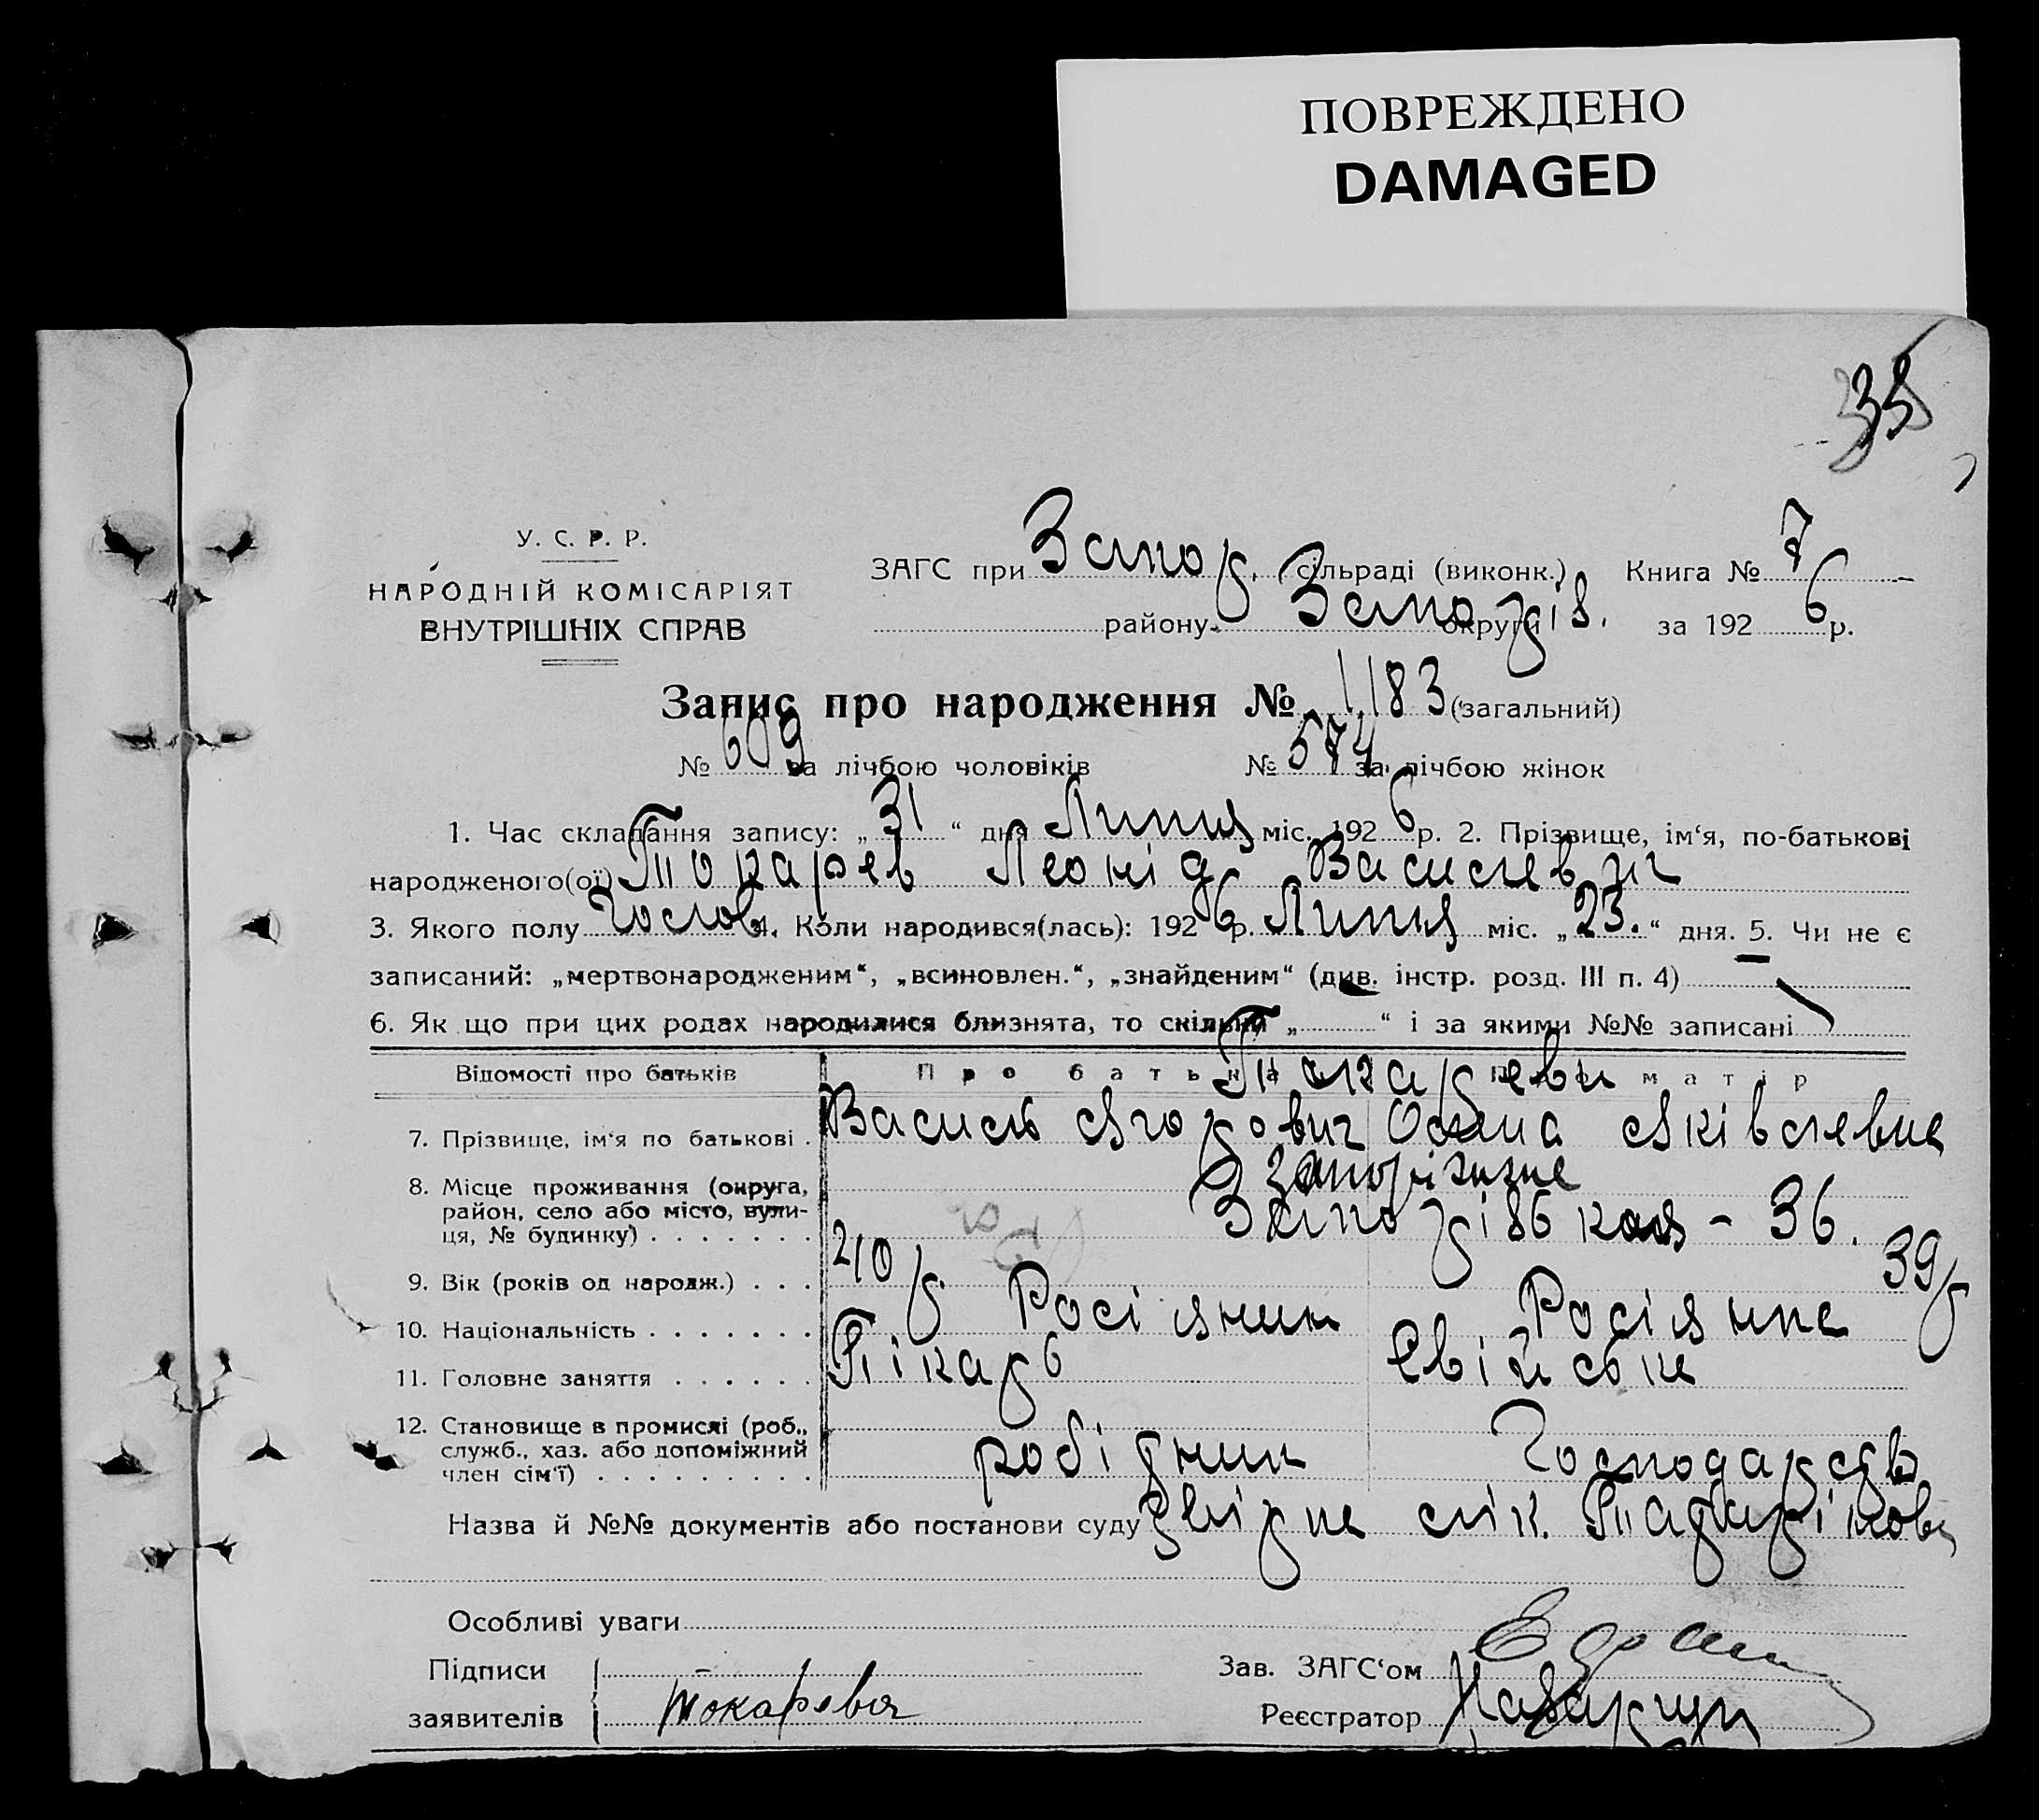 ПОВРЕЖДЕНО
DAMAGED
35
У. С. Р. Р.
НАРОДНІЙ КОМІСАРІЯТ
ВНУТРІШНІХ СПРАВ
ЗАГС при Запор. сільраді (виконк.) Книга № 7
району Запоріз. округи за 1926 р.
Запис про народження № 1183 (загальний)
№ 609 за лічбою чоловіків № 574 за лічбою жінок
1. Час складання запису: „31“ дня Липця міс. 1926 р. 2. Прізвище, ім‘я, по-батькові
народженого(ої) Токарев Леонід Васильевич
3. Якого полу Чолов. 4. Коли народився(лась): 1926 р. Липця міс. „23.“ дня. 5. Чи не є
записаний: „мертвонародженим“, „всиновлен.“, „знайденим“ (див. інстр. розд. III п. 4)
6. Як що при цих родах народилися близнята, то скільки „ “ і за якими №№ записані
Відомості про батьків Про батька Про матір
Токареви
7. Прізвище, ім‘я по батькові . Василь Ягорович Яківлевна
8. Місце проживання (округа, Запоріжже
район, село або місто, вули- Запорізька - 36.
ця, № будинку) . . . . . . .
9. Вік (років од народж.) . . . 39 р
10. Національність . . . . . . . Росіянин Росіянка
11. Головне заняття . . . . . . Пікарь Свійське
12. Становище в промислі (роб.,
служб., хаз. або допоміжний робідник Господарств
член сім‘ї) . . . . . . . . .
Назва й №№ документів або постанови суду
Особливі уваги
Підписи Зав. ЗАГС‘ом
заявителів Токарева Реєстратор